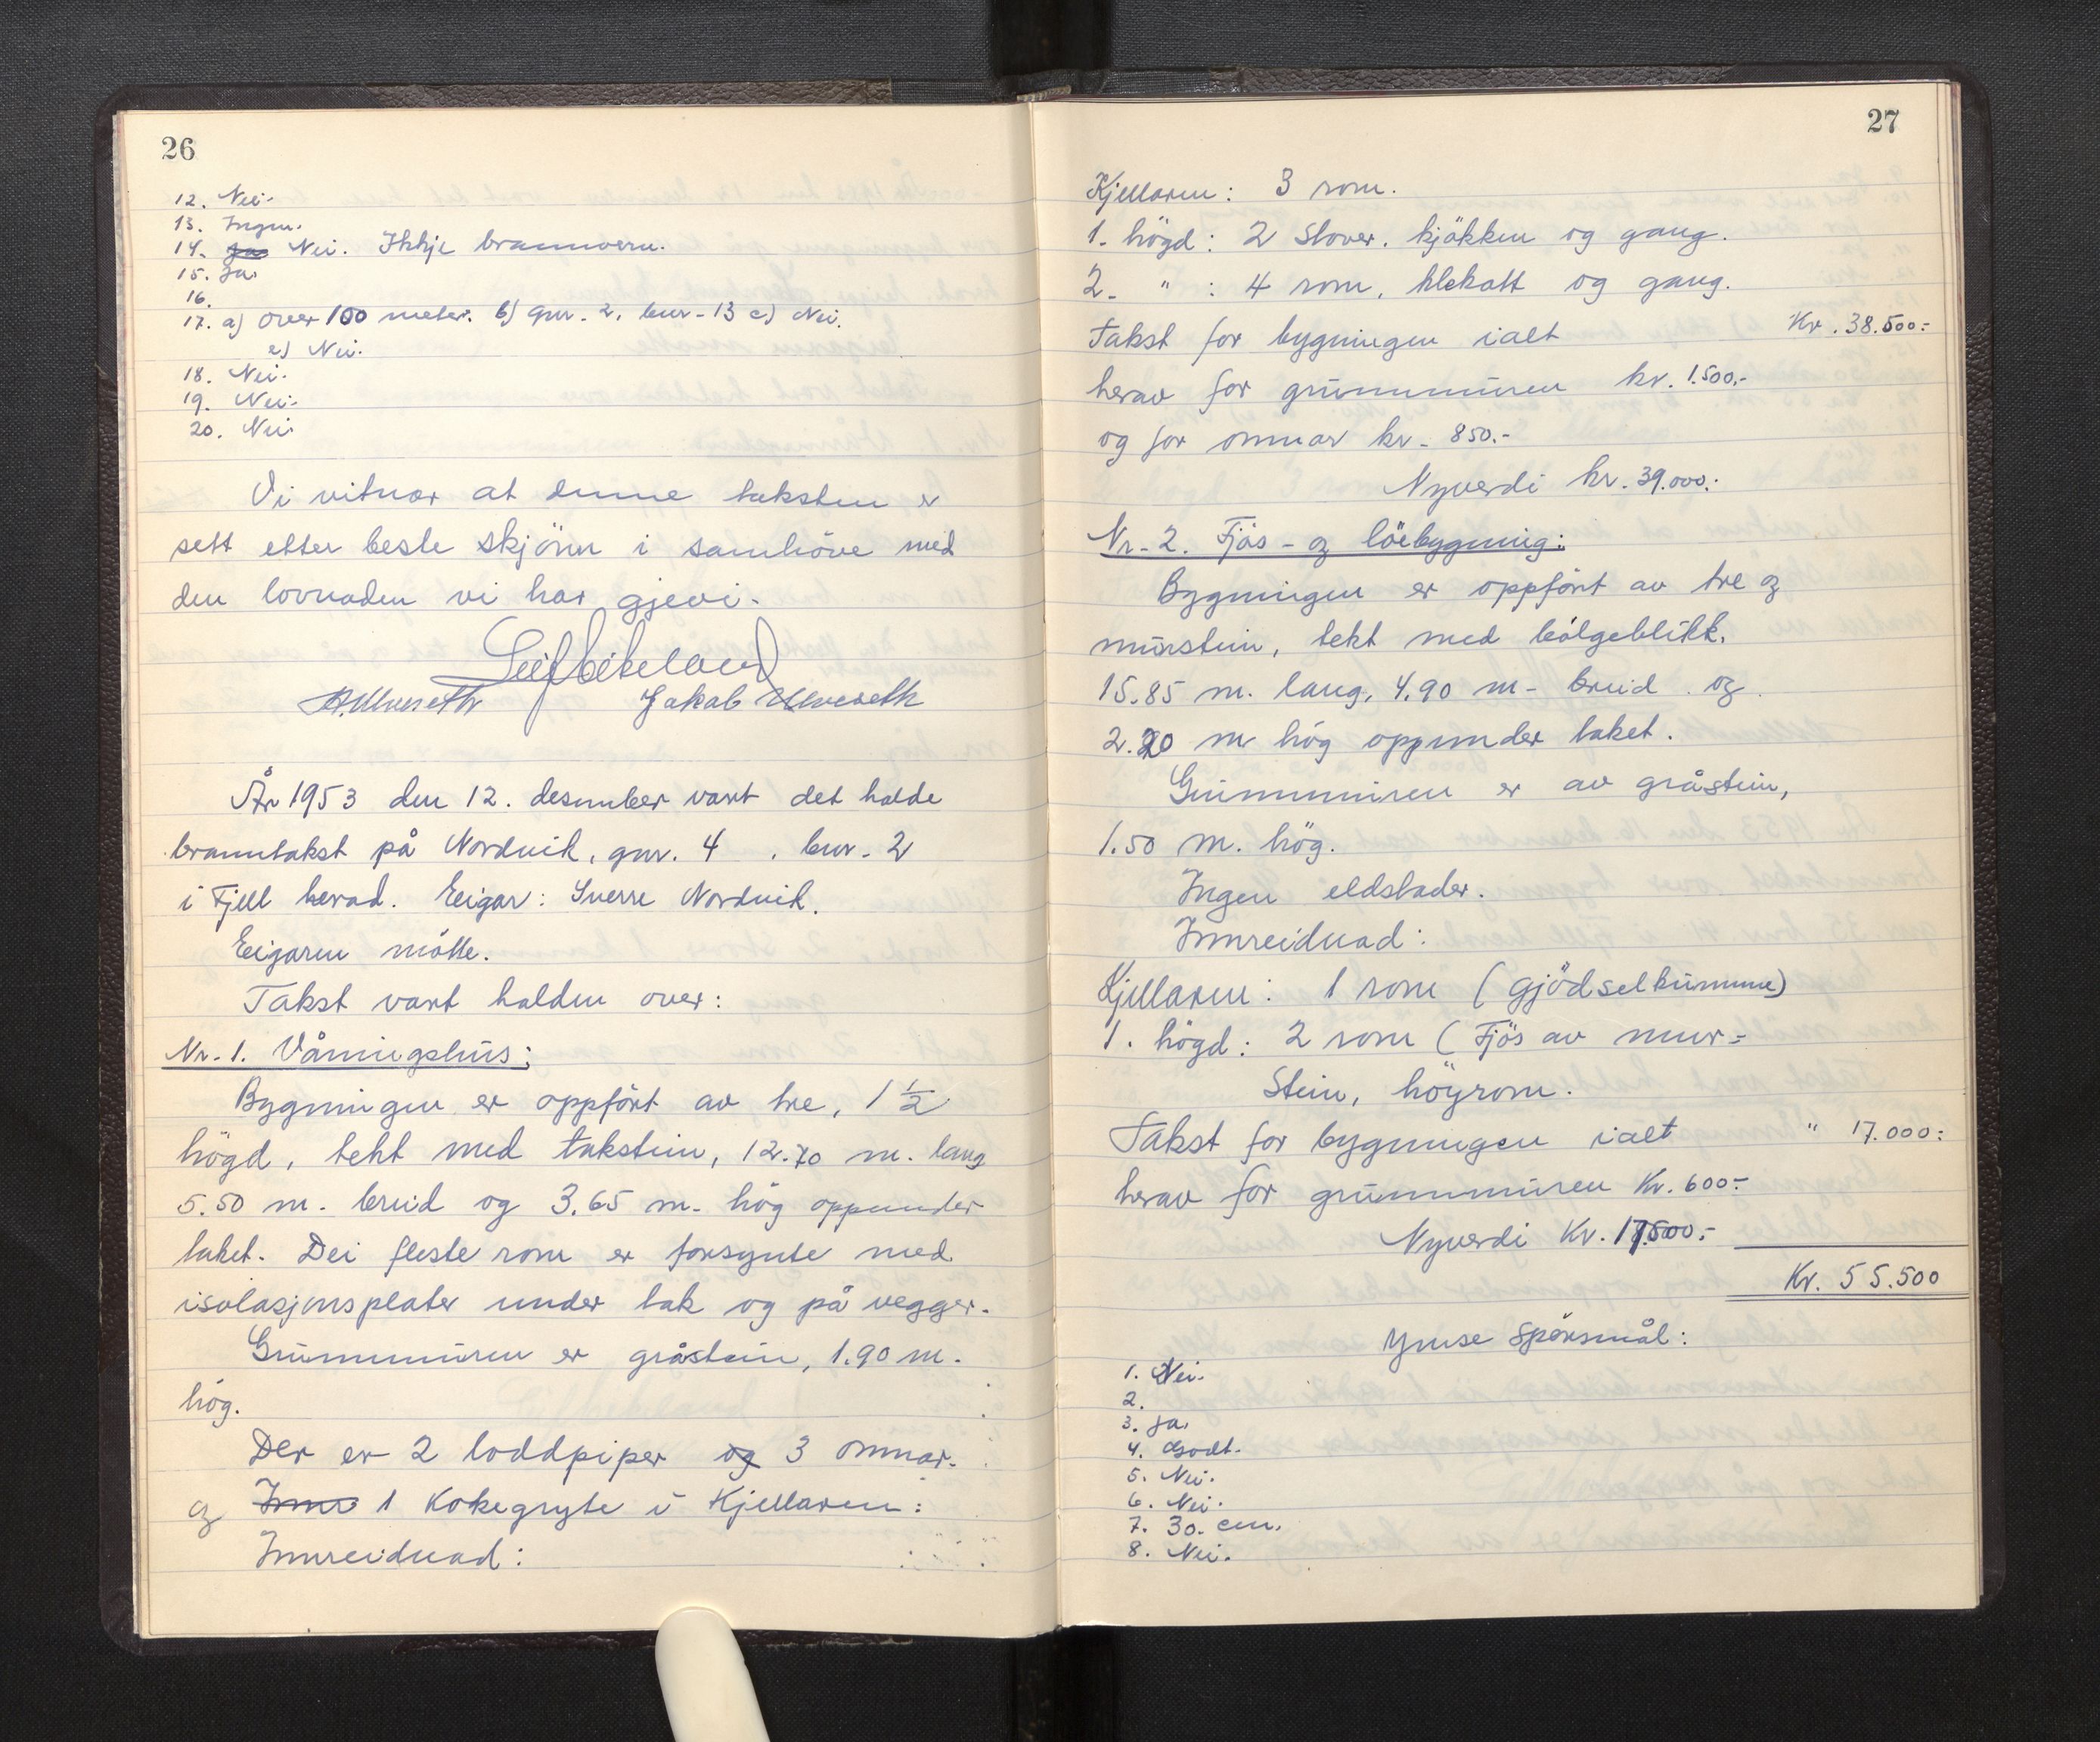 26
12. Nei.
13. Ingen.
14. Ja Nei. Ikkje brannvern.
15. Ja.
16.
17. a) over 100 meter. b) gnr. 2, bnr. 13 c) Nei.
e) Nei.
18. Nei.
19. Nei.
20. Nei.
Vi vitnar at denne taksten er
sett etter beste skjönn i samhöve med
den lovnaden vi har gjevi.
Leif Eikeland
A. Ulveseth Jakob Ulveseth
År 1953 den 12. desember vart det halde
branntakst på Nordvik, gnr. 4 , bnr. 2
i Fjell herad. Eigar: Sverre Nordvik.
Eigaren mötte.
Takst vart halden over:
Nr. 1. Våningshus:
Bygningen er oppfört av tre, 1 1/2
högd, tekt med takstein, 12.70 m. lang
5.50 m. breid og 3.65 m. hög oppunder
taket. Dei fleste rom er forsynte med
isolasjonsplater under tak og på vegger.
Grunnmuren er gråstein, 1.90 m.
hög.
Der er 2 loddpiper og 3 omnar.
og Innr 1 Kokegryte i Kjellaren:
Innreidnad:
27
Kjellaren: 3 rom.
1. högd: 2 Stover, kjökken og gang.
2. " : 4 rom, klekott og gang.
Takst for bygningen ialt Kr. 38.500.-
herav for grunnmuren kr. 1.500.-
og for omnar kr. 850.-
Nyverdi kr. 39.000.-
Nr. 2. Fjös- og löebygning:
Bygningen er oppfört av tre og
murstein, tekt med bölgeblikk.
15.85 m. lang, 4.90 m. breid og
2.20 m hög oppunder taket.
Grunnmuren er av gråstein,
1.50 m. hög.
Ingen eldstader.
Innreidnad:
Kjellaren: 1 rom (gjödselkumme)
1. högd: 2 rom (Fjös av mur-
Stein, höyrom.
Takst for bygningen ialt " 17.000.-
herav for grunnmuren Kr. 600.-
Nyverdi Kr. 17.500.-
Kr. 55.500
Ymse Spörsmål:
1. Nei.
2.
3. Ja.
4. Godt.
5. Nei.
6. Nei.
7. 30. cm.
8. Nei.